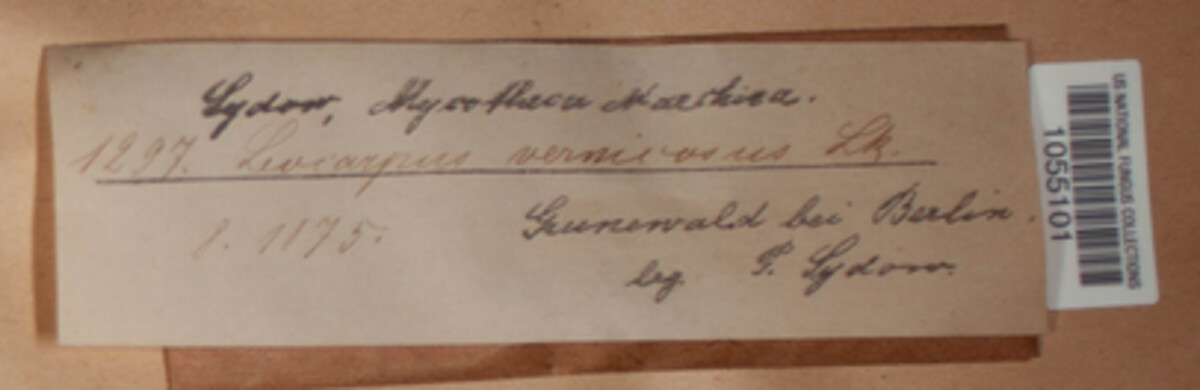 Sydow, Mycotheca Marchica.
1297. Leocarpus vernicosus Lk.
8. 1875.
Grunewald bei Berlin.
leg. P. Sydow.
US NATIONAL FUNGUS COLLECTIONS
1055101